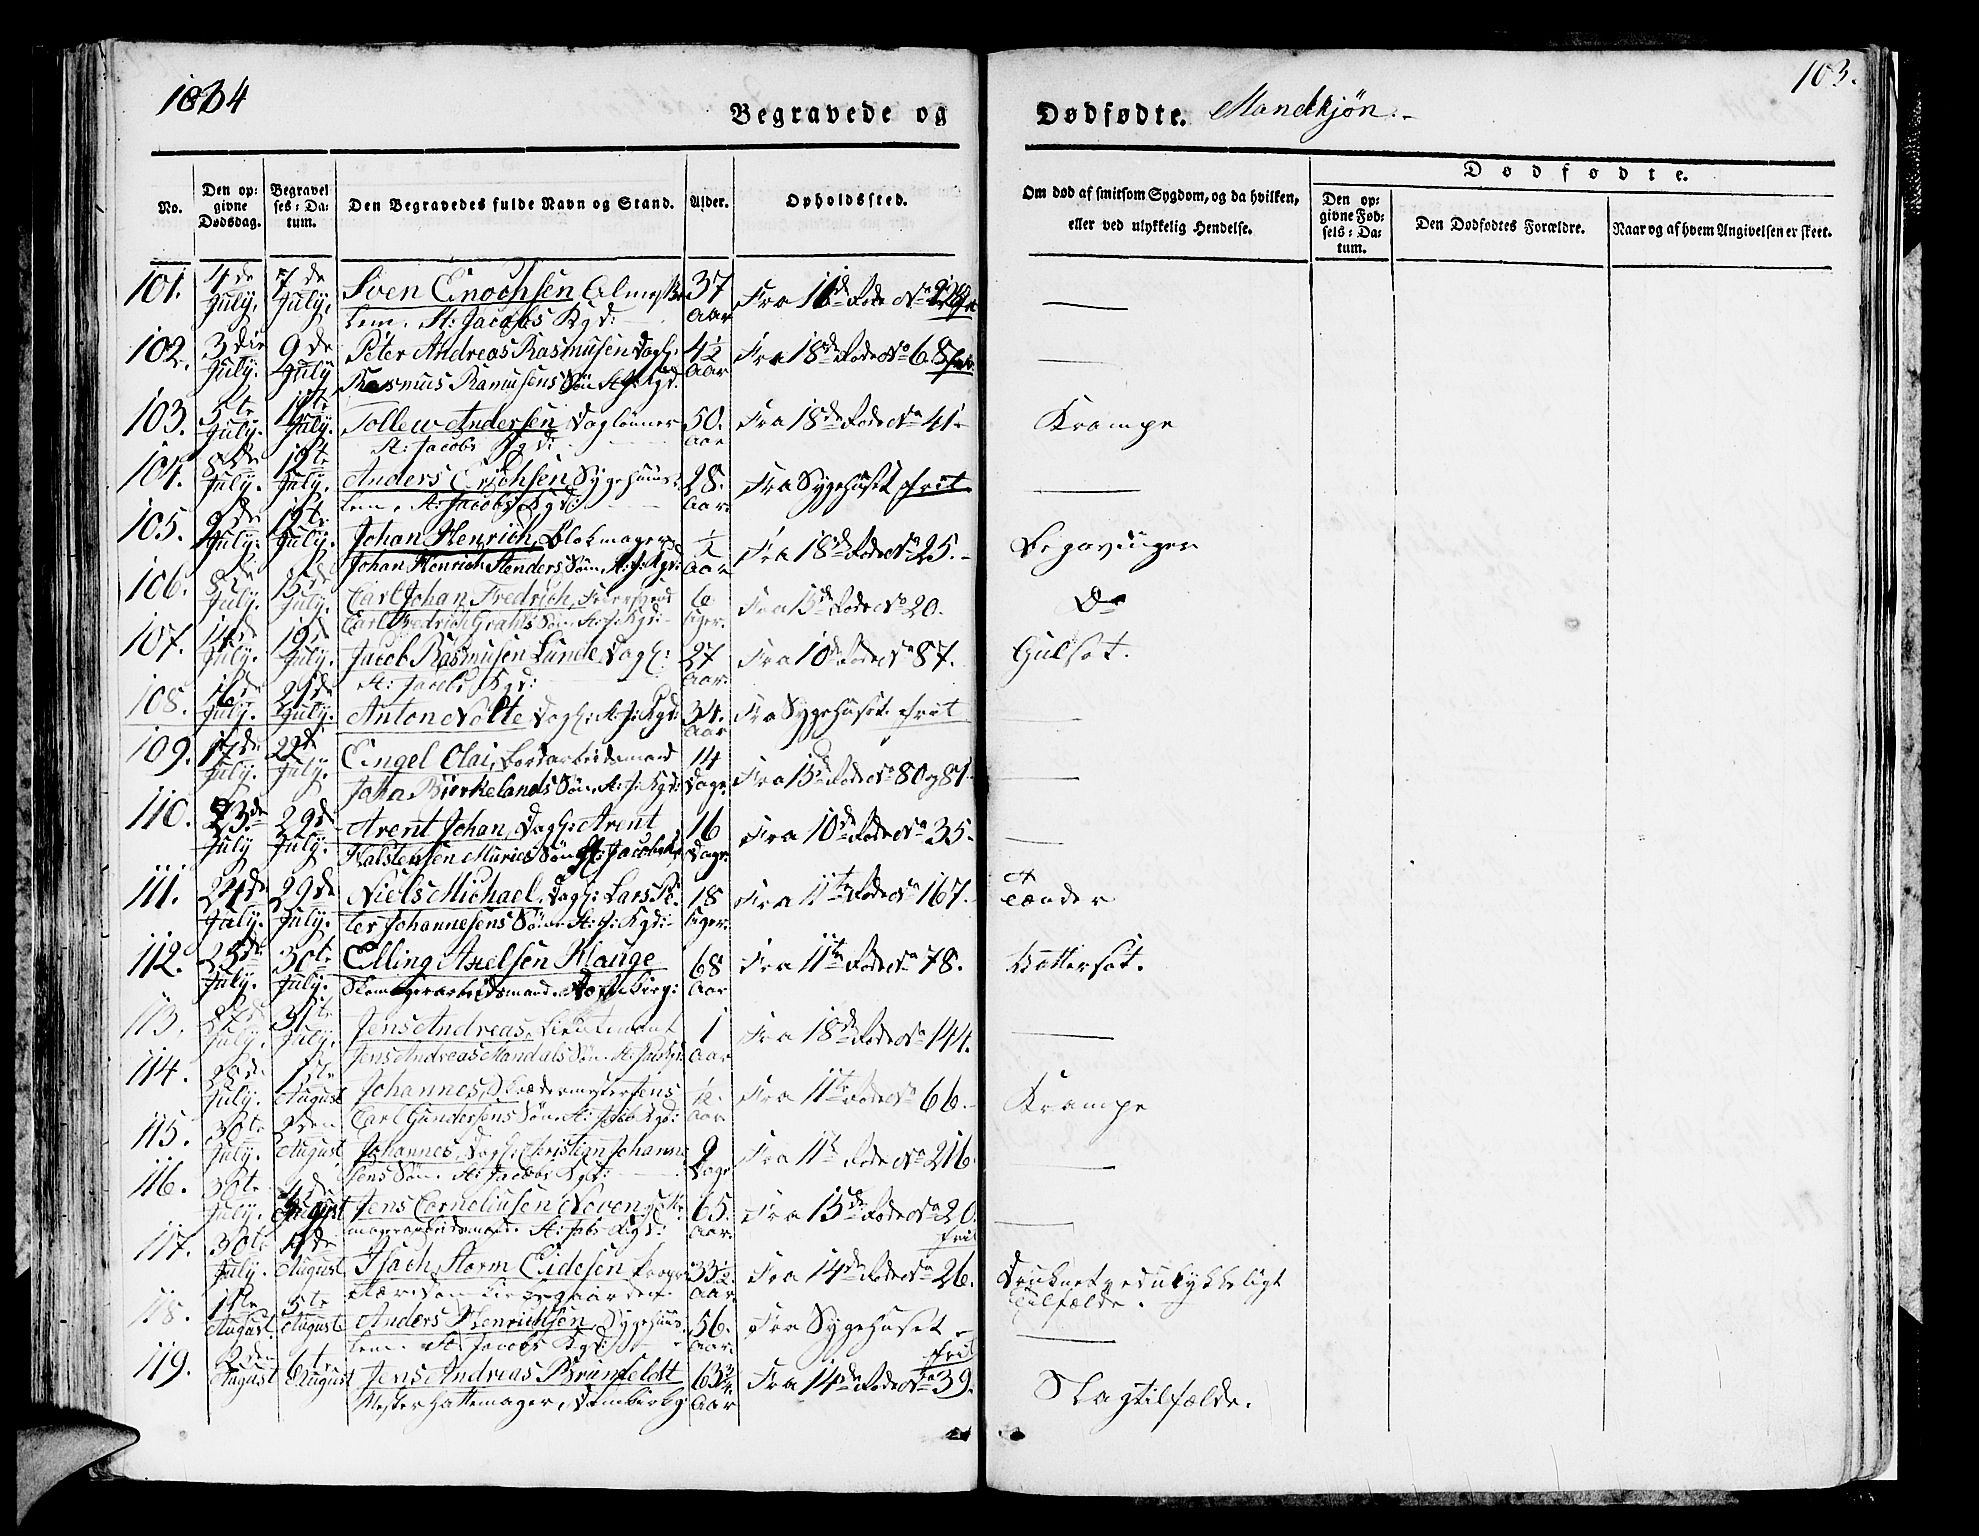 1834
103.
Begravede og Dødfødte. Mandkjøn.
No.
Den opgivne Dødsdag.
Begravelses-Datum.
Den Begravedes fulde Navn og Stand.
Alder.
Opholdssted.
Om død af smitsom Sygdom, og da hvilken, eller ved ulykkelig Hendelse.
Dødfødte.
Den opgivne Fødsels-Datum.
Den Dødfødtes Forældre.
Naar og af hvem Angivelsen er skeet.
101. 4de July. 7de July. Sven Enochsen 37 Aar Fra 16de Rode No
lem. St: Jacobs Kgd:
102. 3die July. 9de July Peter Andreas Rasmusen Dagl: 4½ Aar Fra 18de Rode No 68
Rasmus Ramusens Søn St: J: Kgd:
103. 5te July. July. Tollew Andersen Daglønner 50. Aar Fra 18de Rode No 41 Krampe
St: Jacobs Kgd:
104. 8de July. 12te July. Anders Erichsen Sygehuus- 28. Aar Fra Sygehuset frit
lem, St: Jacobs Kgd:
105. 9de July. 12te July. Johan Henrich, Blokmager ½ Aar Fra 18de Rode No 25.
Johan Henrich Henders Søn St: J: Kgd:
106. 8de July. 15de July. Carl Johan Fredrich, 6 Uger. Fra 15de Rode No 20. Do
Carl Fredrich Grahls Søn St: J: Kgd:
107. 14de July. 19de July. Jacob Rasmusen Lunde, Dagl: 27 Aar. Fra 10de Rode No 87. Gulsot.
St: Jacobs Kgd:
108. 16de July. 21de July. Anton Nolte Dagl: St: J: Kgd: 34. Aar Fra Sygehuset. frit
109. 17de July. 22de July. Engel Olai, Bordarbeidsmand 14 Dage. Fra 15de Rode No 80 og 81
John Bierkelands Søn St: J: Kgd:
110. 23de July 29de July. Arent Johan, Dagl: Arent 16 Dage. Fra 10de Rode No 35.
Halstensen Muries Søn St: Jacobs K
111. 24de July. 29de July. Niels Michael, Dagl: Lars Pe- 18 Uger. Fra 11te Rode No 167. Tænder
ter Johannesens Søn St: J: Kgd:
112. 25de July. 30te July. Elling Axelsen Klauge 68 Aar Fra 11te Rode No 78. Vattersot.
Skomagerarbeidsmand. Domkirkg:
113. July. 31te July. Jens Andreas, Lieutenant 1 Aar Fra 18de Rode No 144.
Jens Andreas Mandals Søn St: Jac Kgd
114. 28de July. 1ste August Johannes, Skrædermester Jens ½ Aar Fra 11te Rode No 66. Krampe
Carl Gundersens Søn St: Jacob Kgd:
115. 30te July. 2den August Johannes, Dagl: Christian Johanne- 9 Dage Fra 11te Rode No 216
sens Søn. St: Jacobs Kgd:
116. 30te July. 4de August Jens Corneliusen Noven, Sko- 65. Aar. Fra 15de Rode No 20. frit
magerarbeidsmand. St: Jabs Kgd:
117. 30te July. 4de August Isach Storm Eidesen 33½ Aar. Fra 14de Rode No 26. Druknet ved ulykkeligt
Tilfælde.
118. 1ste August 5te August Anders Henrichsen, Sygehuus- 56. Aar. Fra Sygehuset
lem. St: Jacobs Kgd: frit
119. 2den August 6te August Jens Andreas Brunfeldt 63¾ Aar Fra 14de Rode No 39. Slagtilfælde.
Mester Hattemager, Domkirkg